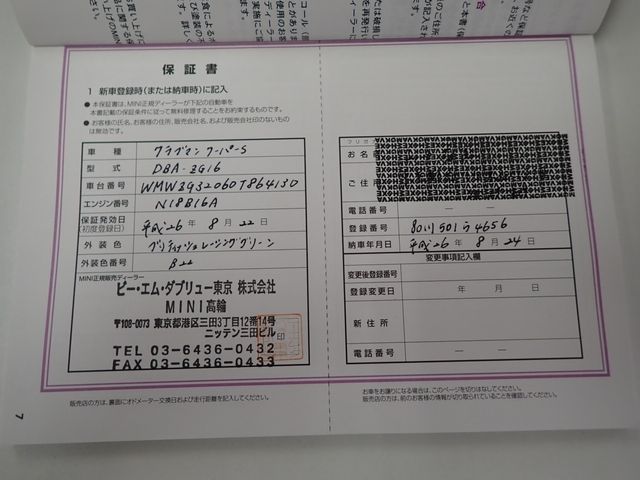 保証書
1 新車登録時(または納車時)に記入
● 本保証書は、MINI正規ディーラーが下記の自動車を
本書記載の保証条件に従って無料修理することをお約束するものです。
● お客様の氏名、お客様の住所、販売会社名、および販売会社印のないもの
は無効です。
車種 クラブマン クーパーS
型式 DBA-ZG16
車台番号
エンジン番号 N18B16A
保証発効日 平成26年 8月 22日
(初度登録日)
外装色 ブリティッシュレーシンググリーン
外装色番号 B22
MINI正規販売ディーラー
ビー・エム・ダブリュー東京 株式会社
MINI高輪
〒108-0073 東京都港区三田3丁目12番14号
ニッテン三田ビル
印
TEL 03-6436-0432
FAX 03-6436-0433
販売店の方は、裏面にオドメーター交換日および走行距離を記入してください。
7
フリガナ
お名前
ご住所
電話番号 ― ―
登録番号 501 ら 4656
納車年月日 平成26年 8月 24日
変更事項記入欄
変更後登録番号
登録変更日 年 月 日
新住所
電話番号 ― ―
お車をお譲りになる場合は、このページを切りはなしてください。
販売店の方は、前のお客様の情報が切り取られていることを確認してください。